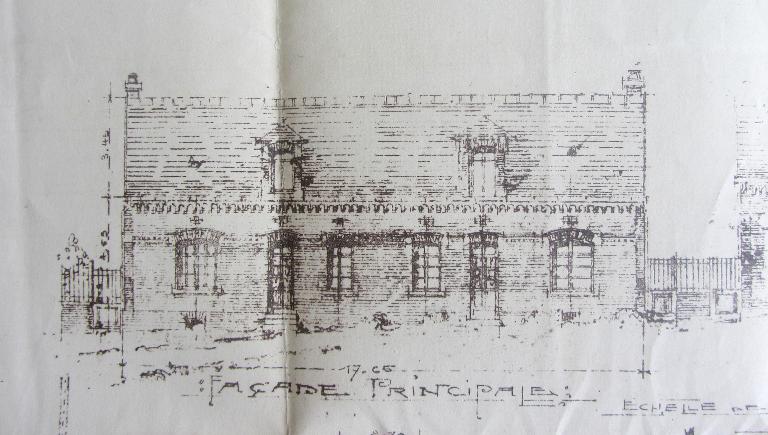 17.66
FAÇADE PRINCIPALE
ECHELLE DE